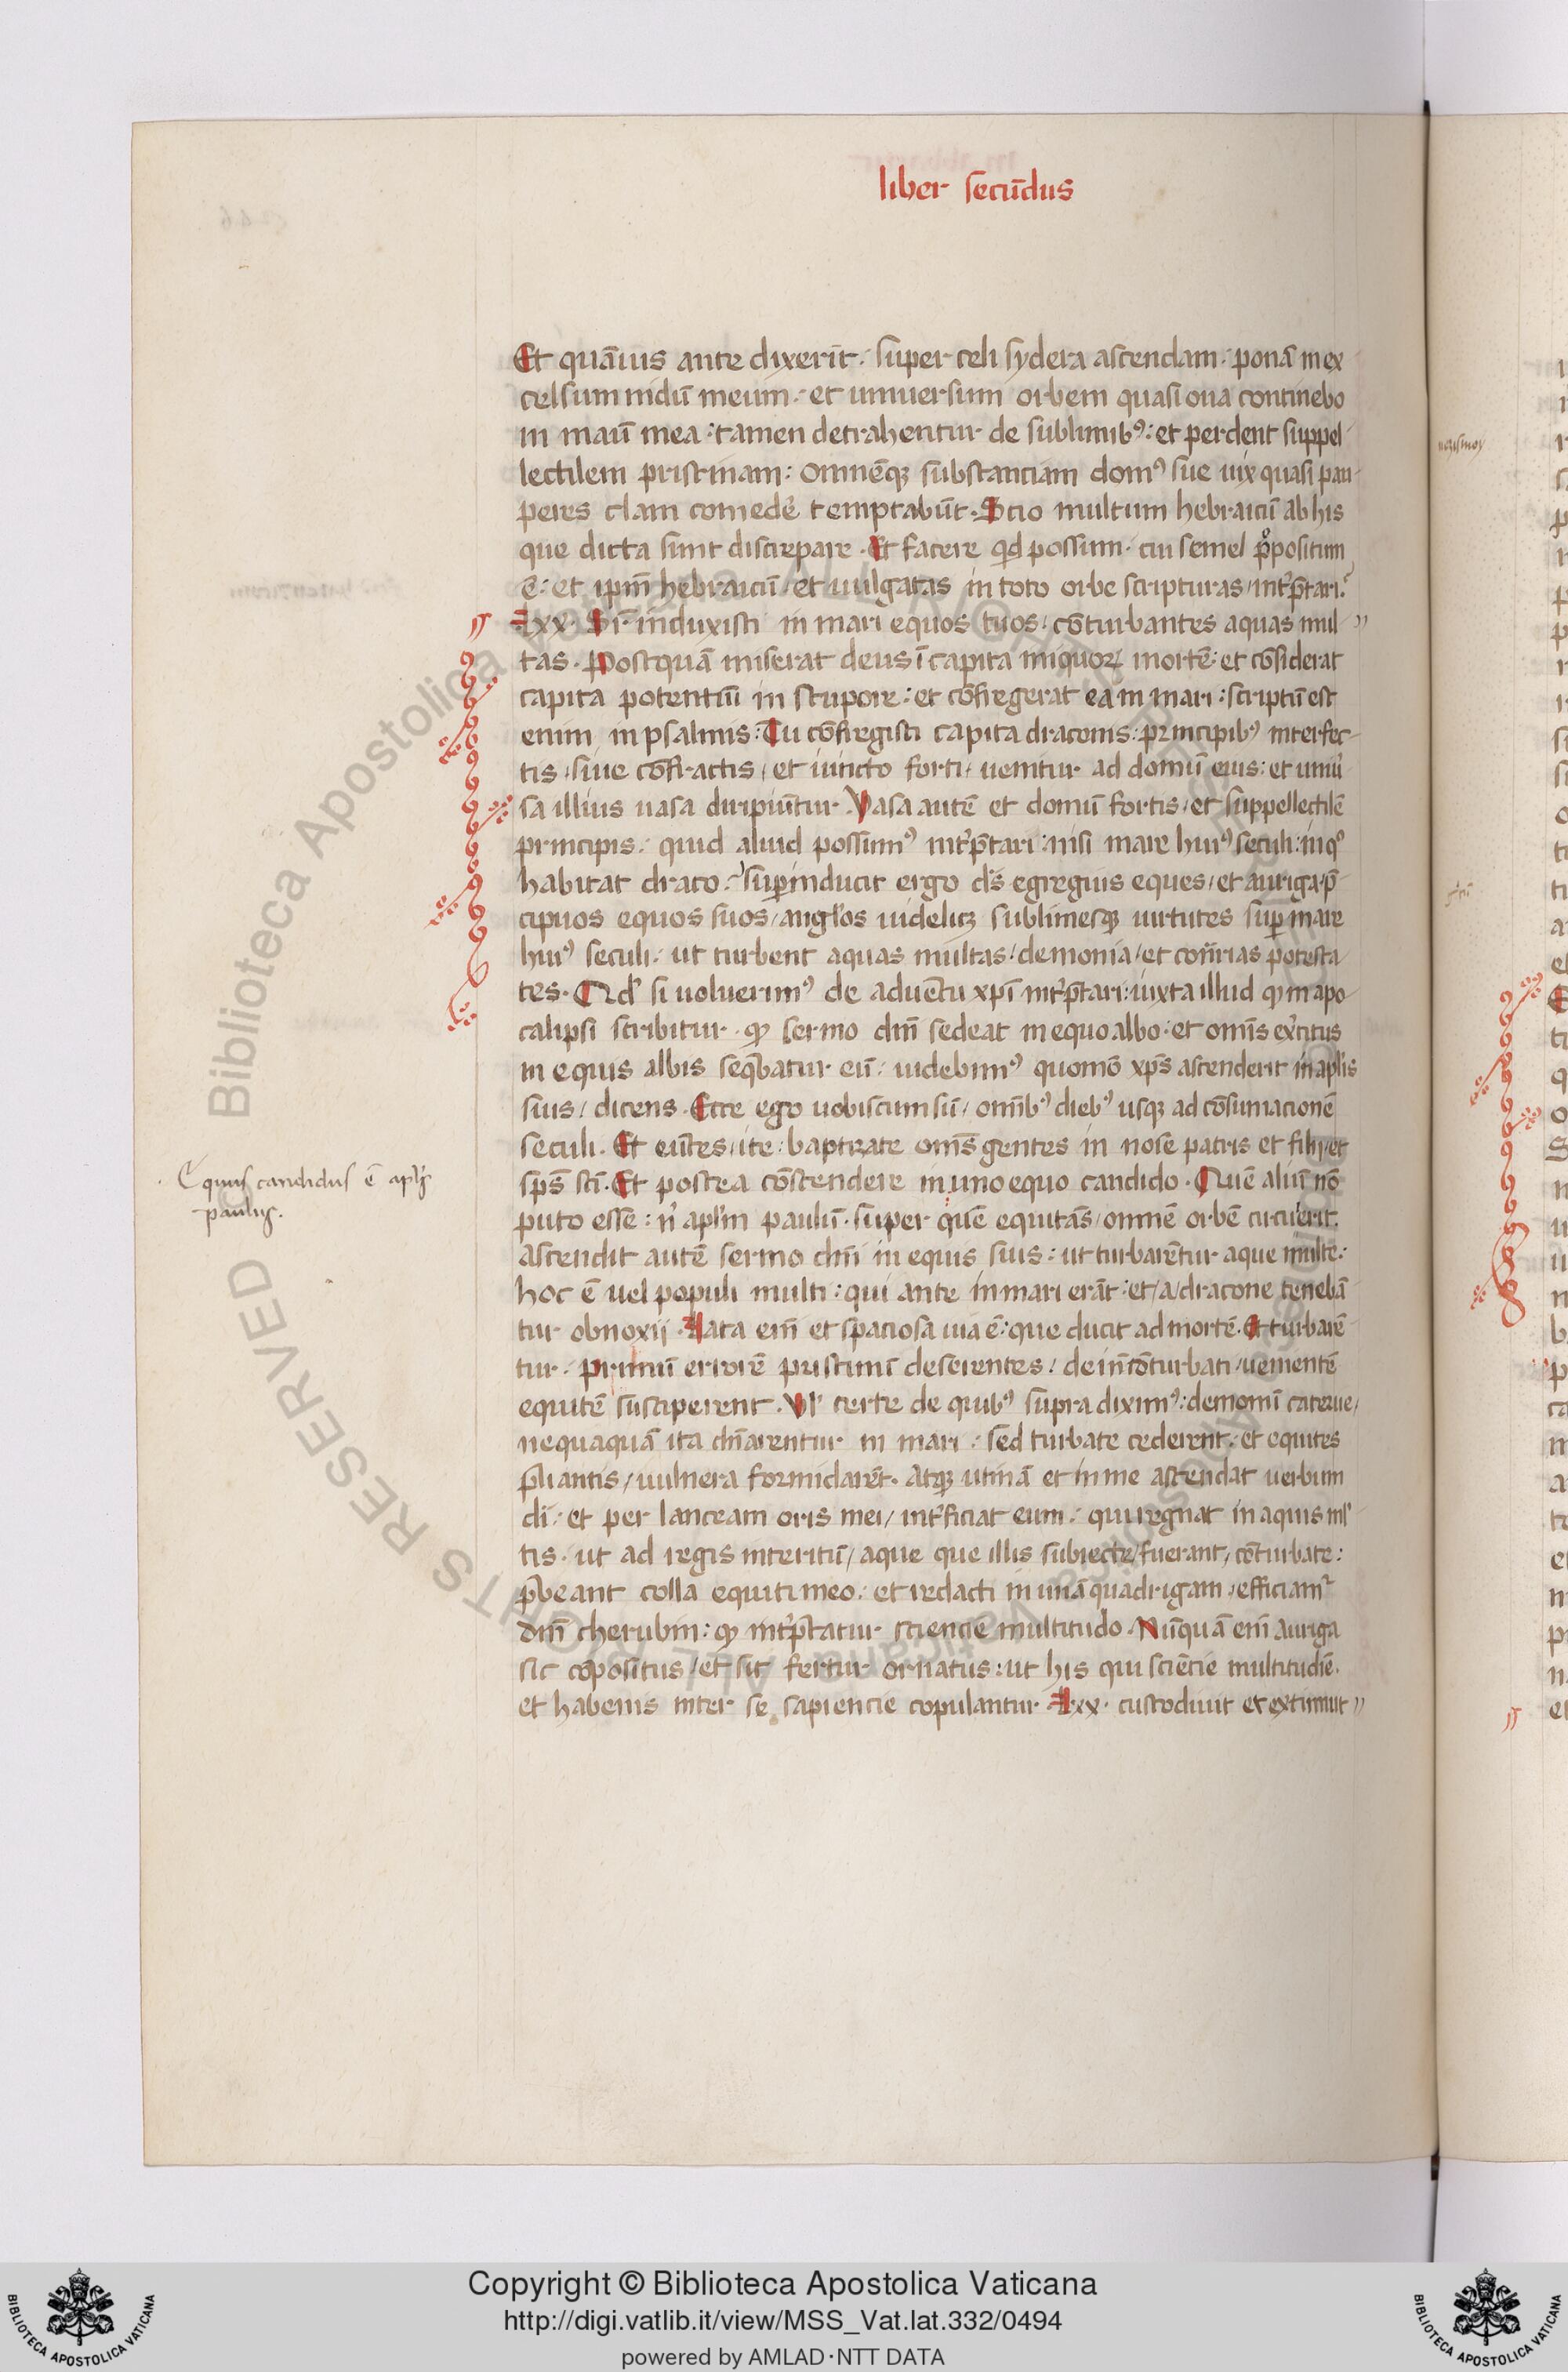 liber secūdus
Et quāuis ante dixerīt: super celi sydera ascendam: ponā in ex
celsum nidū meum: et uniuersum orbem quasi oua continebo
in manū mea: tamen detrahentur de sublimibꝰ: et perdent suppel
lectilem pristinam: omnēqꝫ substanciam domꝰ sue uix quasi pau
peres clam comedere temptabūt. Scio multum hebraicū ab his
que dicta sunt discrepare. Et facere qd possum: cui semel ꝓpositum
ē: et ipm̄ hebraicū / et uulgatas in toto orbe scripturas / intꝰp̄tari.
lxx. Si induxisti in mari equos tuos: cōturbantes aquas mul
tas. Postquā miserat deus ī capita iniquoꝝ mortē: et cōsiderat
capita potentiū in stupore: et cōfregerat ea in mari: scriptū est
enim in psalmis: Tu cōfregisti capita draconis: principibꝰ interfec
tis / siue cōfractis / et iuncto forti / uenitur ad domū eius: et uniū
sa illius uasa diripiūtur. Vasa autē et domū fortis / et suppellectilē
principis: quid aliud possimꝰ intꝰp̄tari: nisi mare huiꝰ seculi: in qꝰ
habitat draco. Suꝑinducit ergo ds̄ egregius eques / et auriga p̄
cipuos equos suos / angl̄os uidelicꝫ sublimesqꝫ uirtutes suꝑ mare
huiꝰ seculi: ut turbent aquas multas / demonia / et cont̄rias potesta
tes. Qd' si uoluerimꝰ de aduētu xp̄i intꝰp̄tari: iuxta illud ꝙ in apo
calipsi scribitur: ꝙ sermo dn̄i sedeat in equo albo: et omīs exꝰcitus
in equis albis seq̄batur eū: uidebimꝰ quomō xp̄s ascenderit in apl̄is
suis / dicens. Ecce ego uobiscum sū / omībꝰ diebꝰ usqꝫ ad cōsumacionē
seculi. Et eūtes / ite: baptizate oms̄ gentes in noīe patris et filij / et
sps̄ scī. Et postea cōscendere in uno equo candido. Quē aliū nō
puto esse: n' apl̄m paulū: super quē equitās / omnē orbē circuierit.
Ascendit autē sermo dn̄i in equis suis: ut turbarētur aque multe:
hoc ē uel populi multi: qui ante in mari erāt: et / a / dracone tenebā
tur obnoxij. Lata eni et spaciosa uia ē: que ducit ad mortē. Et turbarē
tur: primū errorē pristinū deserentes: dein cōturbati / uenientē
equitē susciperent. Vl' certe de quibꝰ supra diximꝰ: demonū caterue /
nequaquā ita dn̄arentur in mari: sed turbate cederent: et equites
p̄liantis / uulnera formidarēt. Atqꝫ utinā et in me ascendat uerbum
di: et per lanceam oris mei / intꝰficiat eum: qui regnat in aquis ml'
tis: ut ad regis interitū / aque que illis subiecte / fuerant / cōturbate:
p̄beant colla equiti meo: et redacti in unā quadrigam / efficiamꝰ
dn̄i cherubin: ꝙ intꝰp̄tatur sciencie multitudo. Nūquā eni auriga
sic cōpositus / et sic fertur ornatus: ut his qui sciēcie multitudīe.
et habenis inter se sapiencie copulantur. lxx. custodiuit et extimuit
Equus candidus ē apl's
paulus.
Copyright © Biblioteca Apostolica Vaticana
http://digi.vatlib.it/view/MSS_Vat.lat.332/0494
powered by AMLAD·NTT DATA